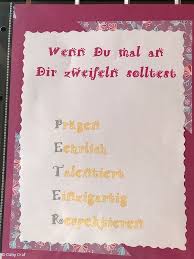 Wenn Du mal an
Dir zweifeln solltest
Prägen
Ehrlich
Talentiert
Einzigartig
Respektieren